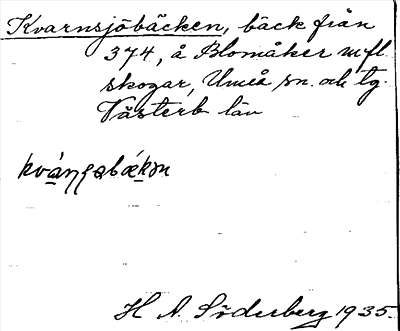 Kvarnsjöbäcken, bäck från
374, å Blomåker m fl.
skogar, Umeå sn. och tg.
Västerb län
H A. Söderberg 1935.